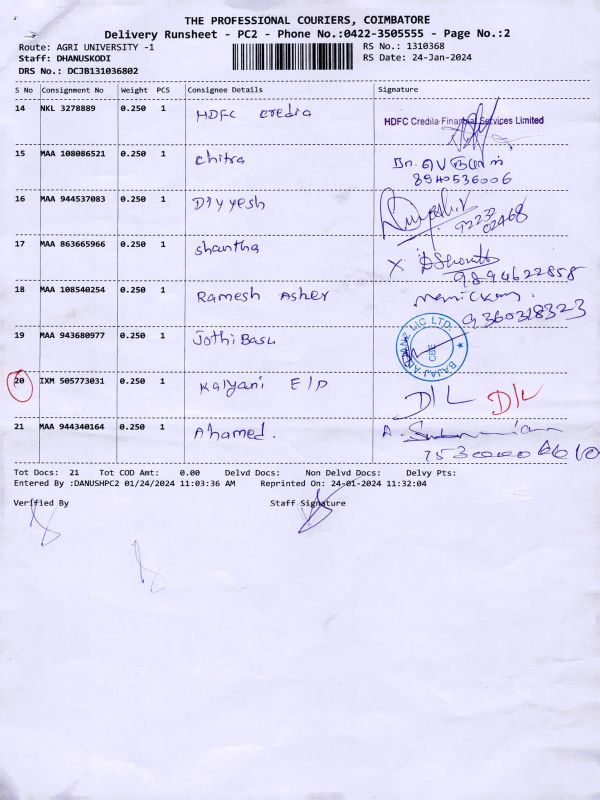 THE PROFESSIONAL COURIERS, COIMBATORE
Delivery Runsheet - PC2 - Phone No.:0422-3505555 - Page No.:2
Route: AGRI UNIVERSITY -1 RS No.: 1310368
Staff: DHANUSKODI RS Date: 24-Jan-2024
DRS No.: DCJB131036802
S No Consignment No Weight PCS Consignee Details Signature
14 NKL 3278889 0.250 1 HDFC credia HDFC Credila Financial Services Limited
15 MAA 108086521 0.250 1 chitra
8940536006
16 MAA 944537083 0.250 1 Divyesh
17 MAA 863665966 0.250 1 shantha X
9894622858
18 MAA 108540254 0.250 1 Ramesh Asher
9360318323
19 MAA 943680977 0.250 1 Jothi Basu BAJAJ ALLIANZ LIC LTD. CBE
20 IXM 505773031 0.250 1 Kalyani E/D D/L D/L
21 MAA 944340164 0.250 1 Ahamed. A.
Tot Docs: 21 Tot COD Amt: 0.00 Delvd Docs: Non Delvd Docs: Delvy Pts:
Entered By :DANUSHPC2 01/24/2024 11:03:36 AM Reprinted On: 24-01-2024 11:32:04
Verified By Staff Signature